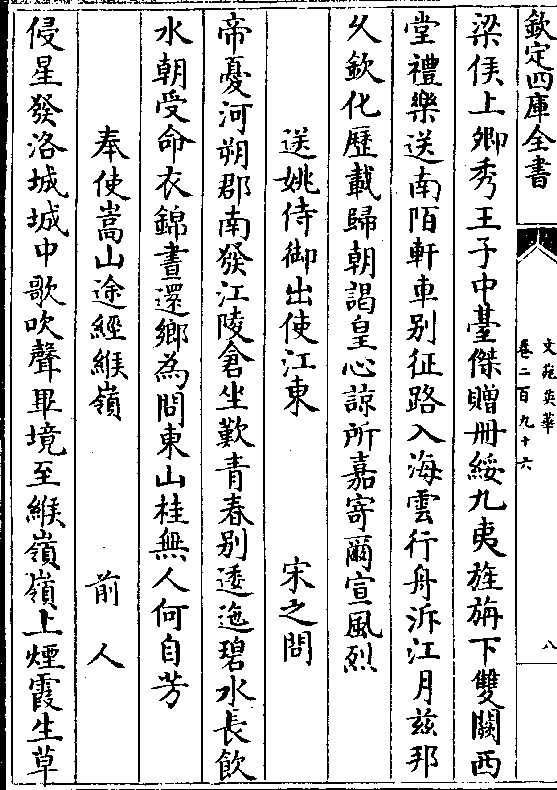 欽定四庫全書
文苑英華
卷二百九十六
八
梁侯上卿秀王子中臺傑贈冊綏九夷旌旃下雙闕西
堂禮樂送南陌軒車别征路入海雲行舟泝江月兹邦
乆欽化歴載歸朝謁皇心諒所嘉寄爾宣風烈
送姚侍御出使江東
宋之問
帝憂河朔郡南發江陵倉坐歎青春别逶迤碧水長飲
水朝受命衣錦晝還鄉為問東山桂無人何自芳
奉使嵩山途經緱嶺
前人
侵星發洛城城中歌吹聲畢境至緱嶺嶺上煙霞生草